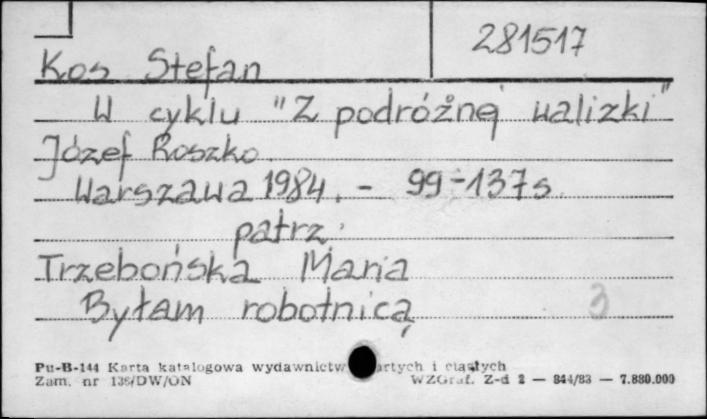 281517
Kos Stefan
W cyklu "Z podróżnej walizki"
Józef Roszko
Warszawa 1984. - 99-137s
patrz:
Trzebońska Maria
Byłam robotnicą
3
Pu-B-144 Karta katalogowa wydawnictw zwartych i ciągłych
Zam. nr 136/DW/ON WZGraf. Z-d 2 — 844/83 — 7.880.000